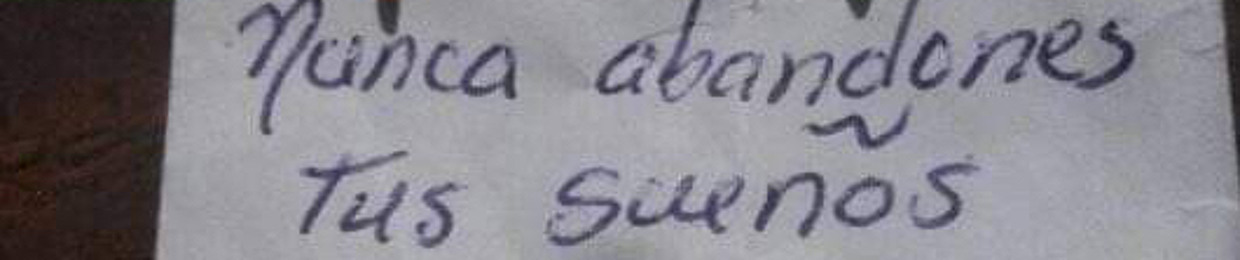 Nunca abandones
Tus sueños